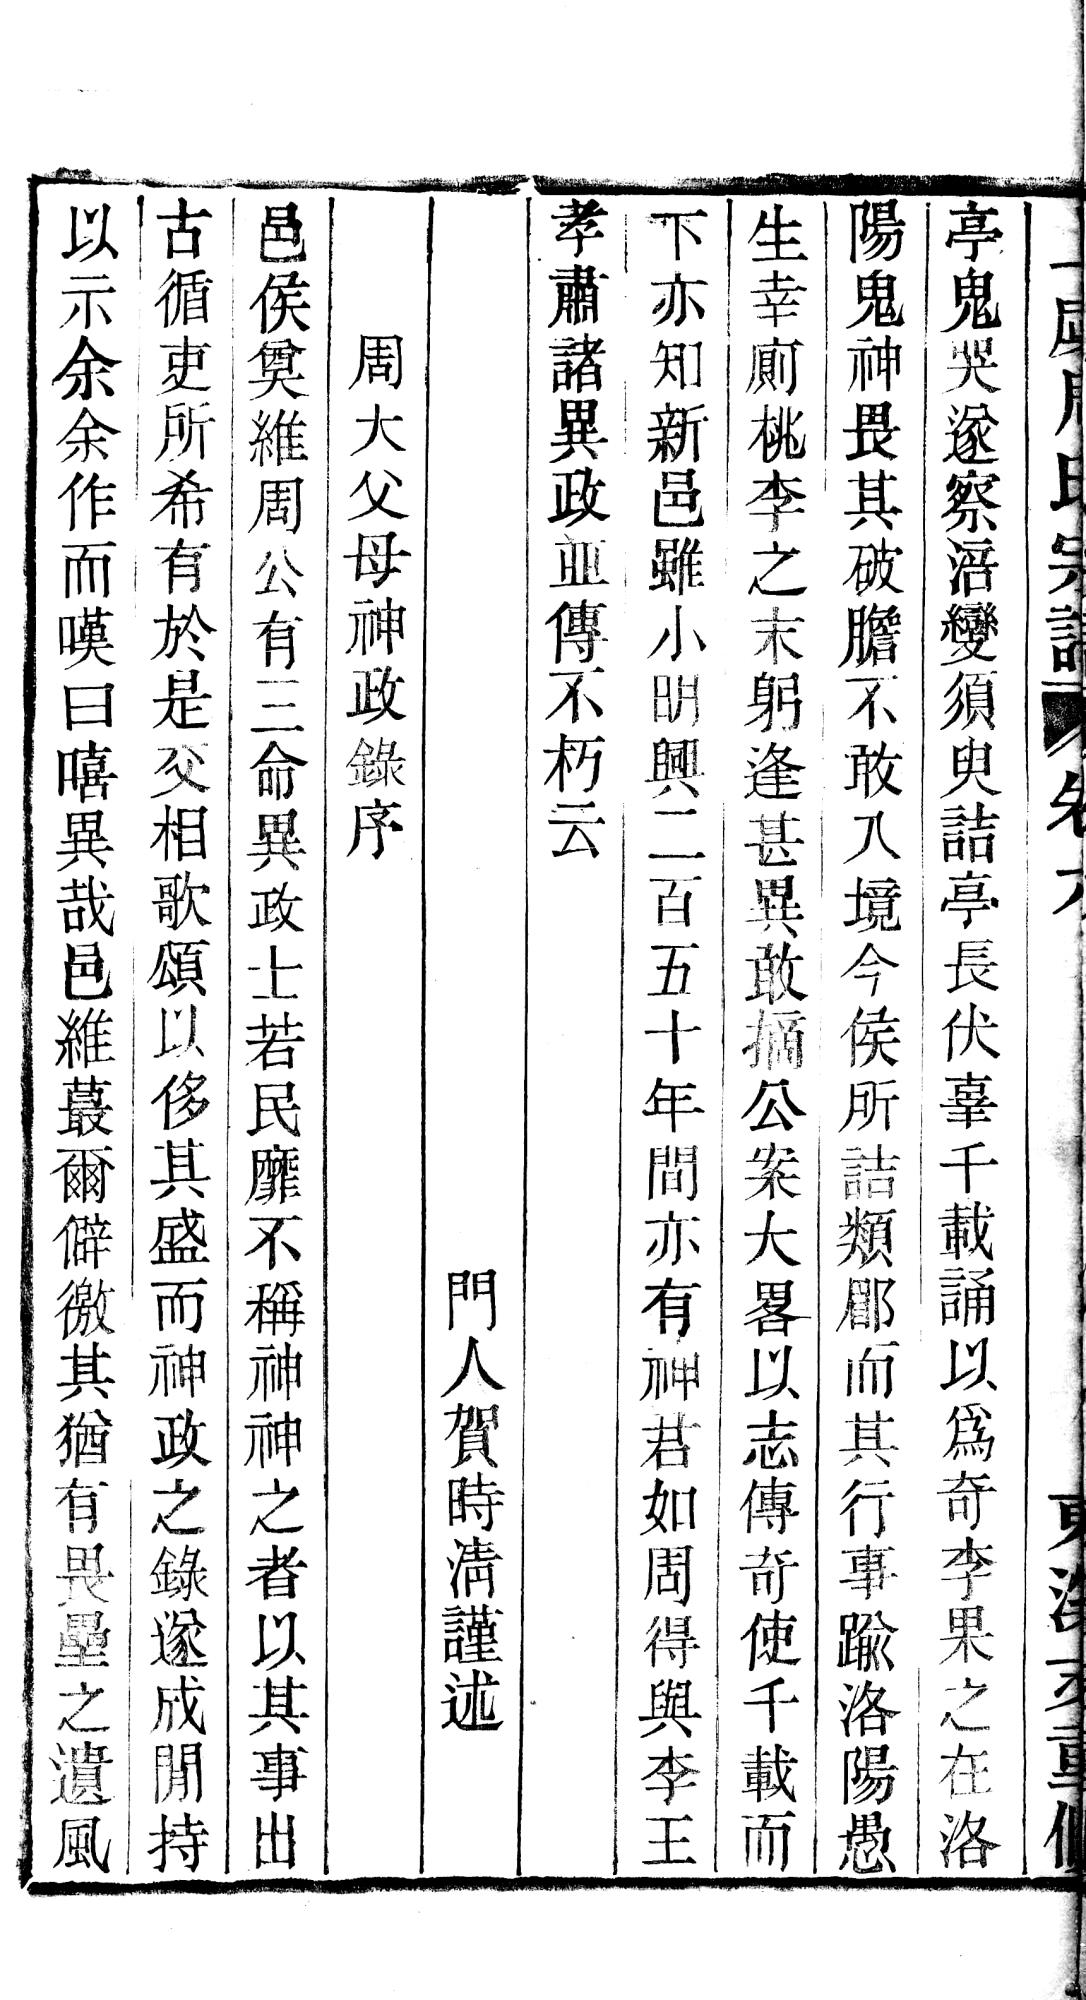 氏宗譜 卷
亭鬼哭遂察涪變須臾詰亭長伏辜千載誦以爲奇李果之在洛
陽鬼神畏其破膽不敢入境今侯所詰類郿而其行事踰洛陽愚
生幸廁桃李之末躬逢甚異敢摘公案大畧以志傳奇使千載而
下亦知新邑雖小明興二百五十年間亦有神君如周得與李王
孝肅諸異政並傳不朽云
門人賀時淸謹述
周大父母神政錄序
邑侯奠維周公有三命異政士若民靡不稱神神之者以其事出
古循吏所希有於是交相歌頌以侈其盛而神政之錄遂成閒持
以示余余作而嘆曰嘻異哉邑維蕞爾僻徼其猶有畏壘之遺風